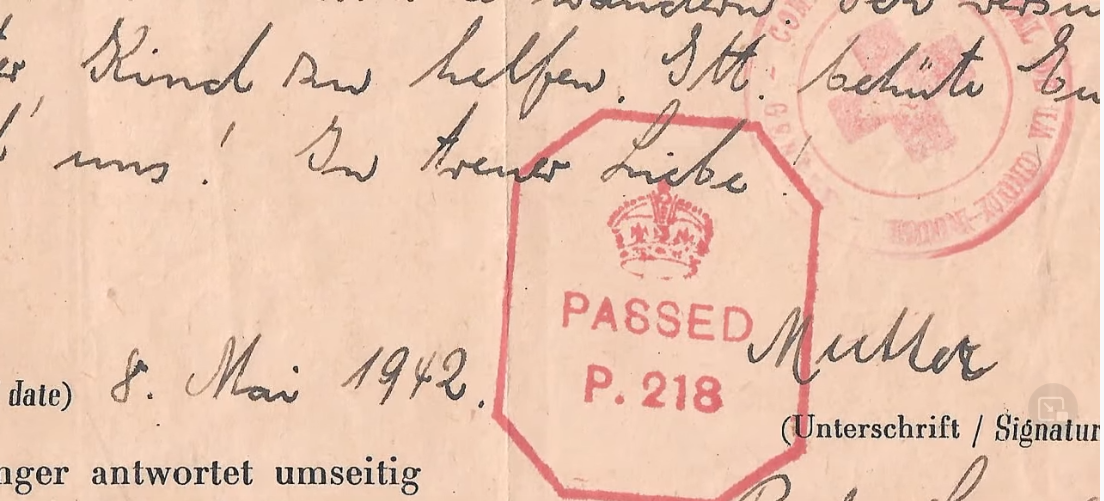 wandern
Kind zu helfen. Gtt. behüte Eu
uns! In treuer Liebe!
PASSED
P. 218
Mutter
date) 8. Mai 1942.
(Unterschrift / Signatur
nger antwortet umseitig